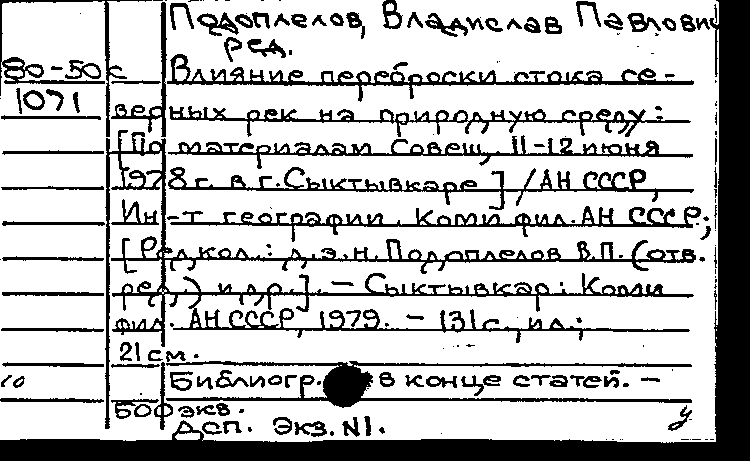 Подоплелов, Владислав Павлович
ред.
80-50с Влияние переброски стока се-
1071 верных рек на природную среду:
[По материалам Совещ., 11-12 июня
1978 г. в г. Сыктывкаре] / АН СССР,
Ин-т географии, Коми фил. АН СССР;
[Редкол.: д.э.н. Подоплелов В.П. (отв.
ред.) и др.]. - Сыктывкар: Коми
фил. АН СССР, 1979. - 131 с., ил.;
21 см.
10 Библиогр. в конце статей. -
500 экз.
ДСП. Экз. N1. У